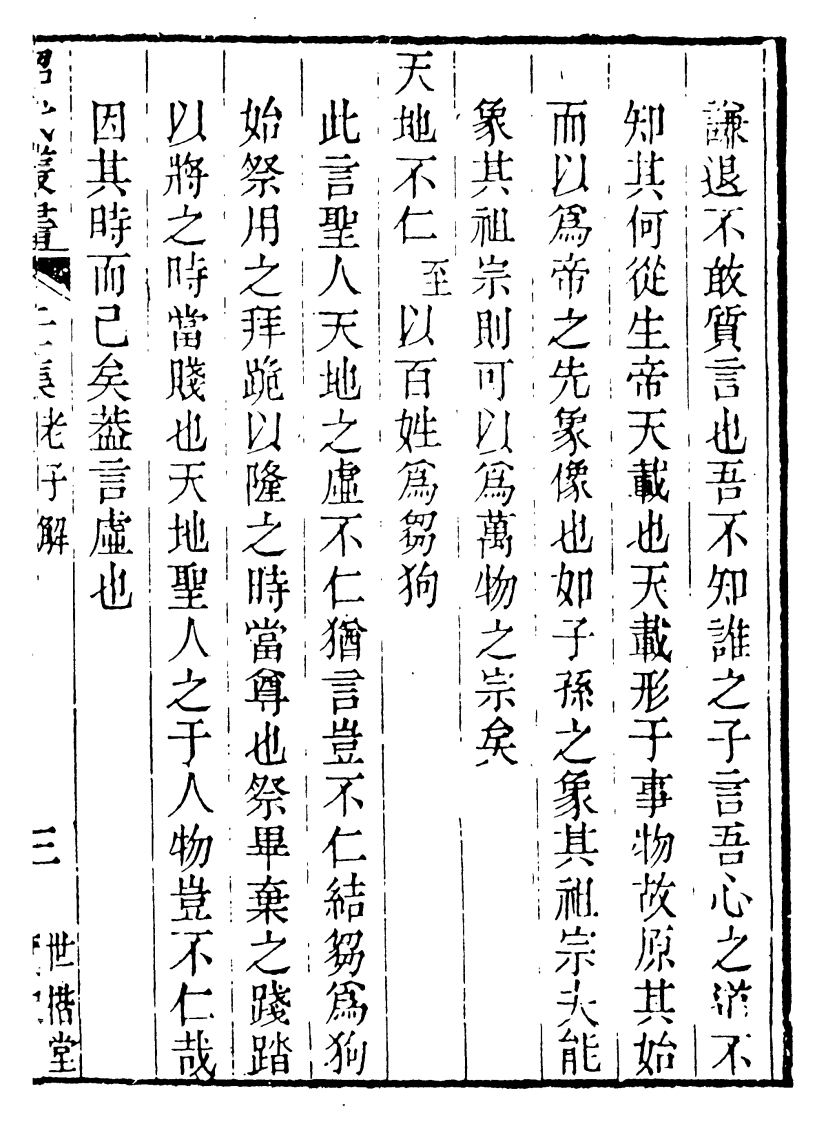 謙退不敢質言也吾不知誰之子言吾心之道不
知其何從生帝天載也天載形于事物故原其始
而以爲帝之先象像也如子孫之象其祖宗夫能
象其祖宗則可以爲萬物之宗矣
天地不仁至以百姓爲芻狗
此言聖人天地之虛不仁猶言豈不仁結芻爲狗
始祭用之拜跪以隆之時當尊也祭畢棄之踐踏
以將之時當賤也天地聖人之于人物豈不仁哉
因其時而已矣葢言虛也
昭代叢書
集老子解
三
世楷堂